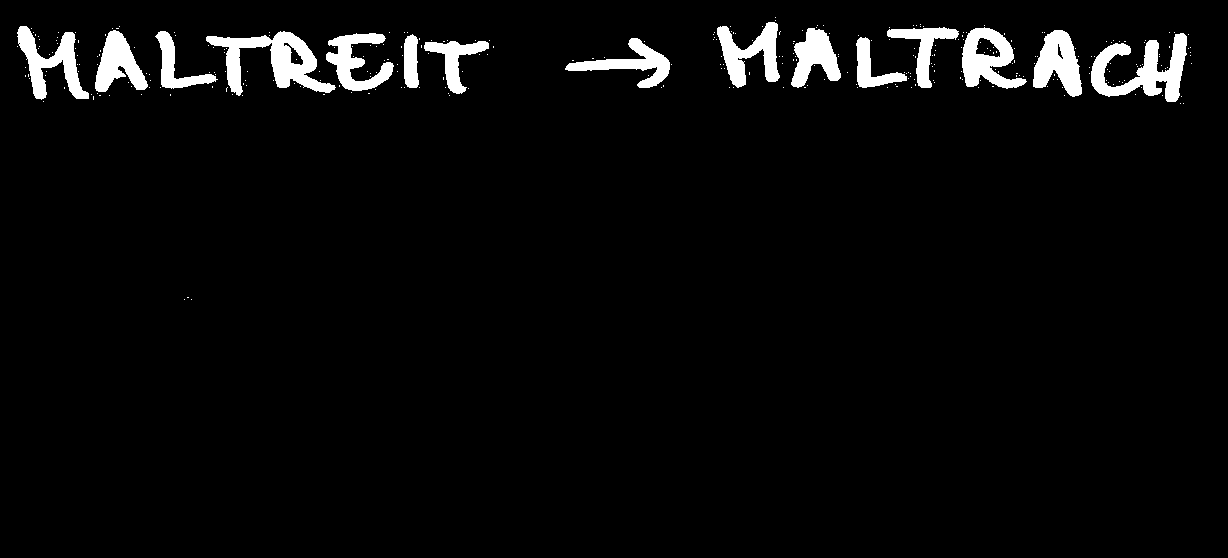 MALTREIT → MALTRACH